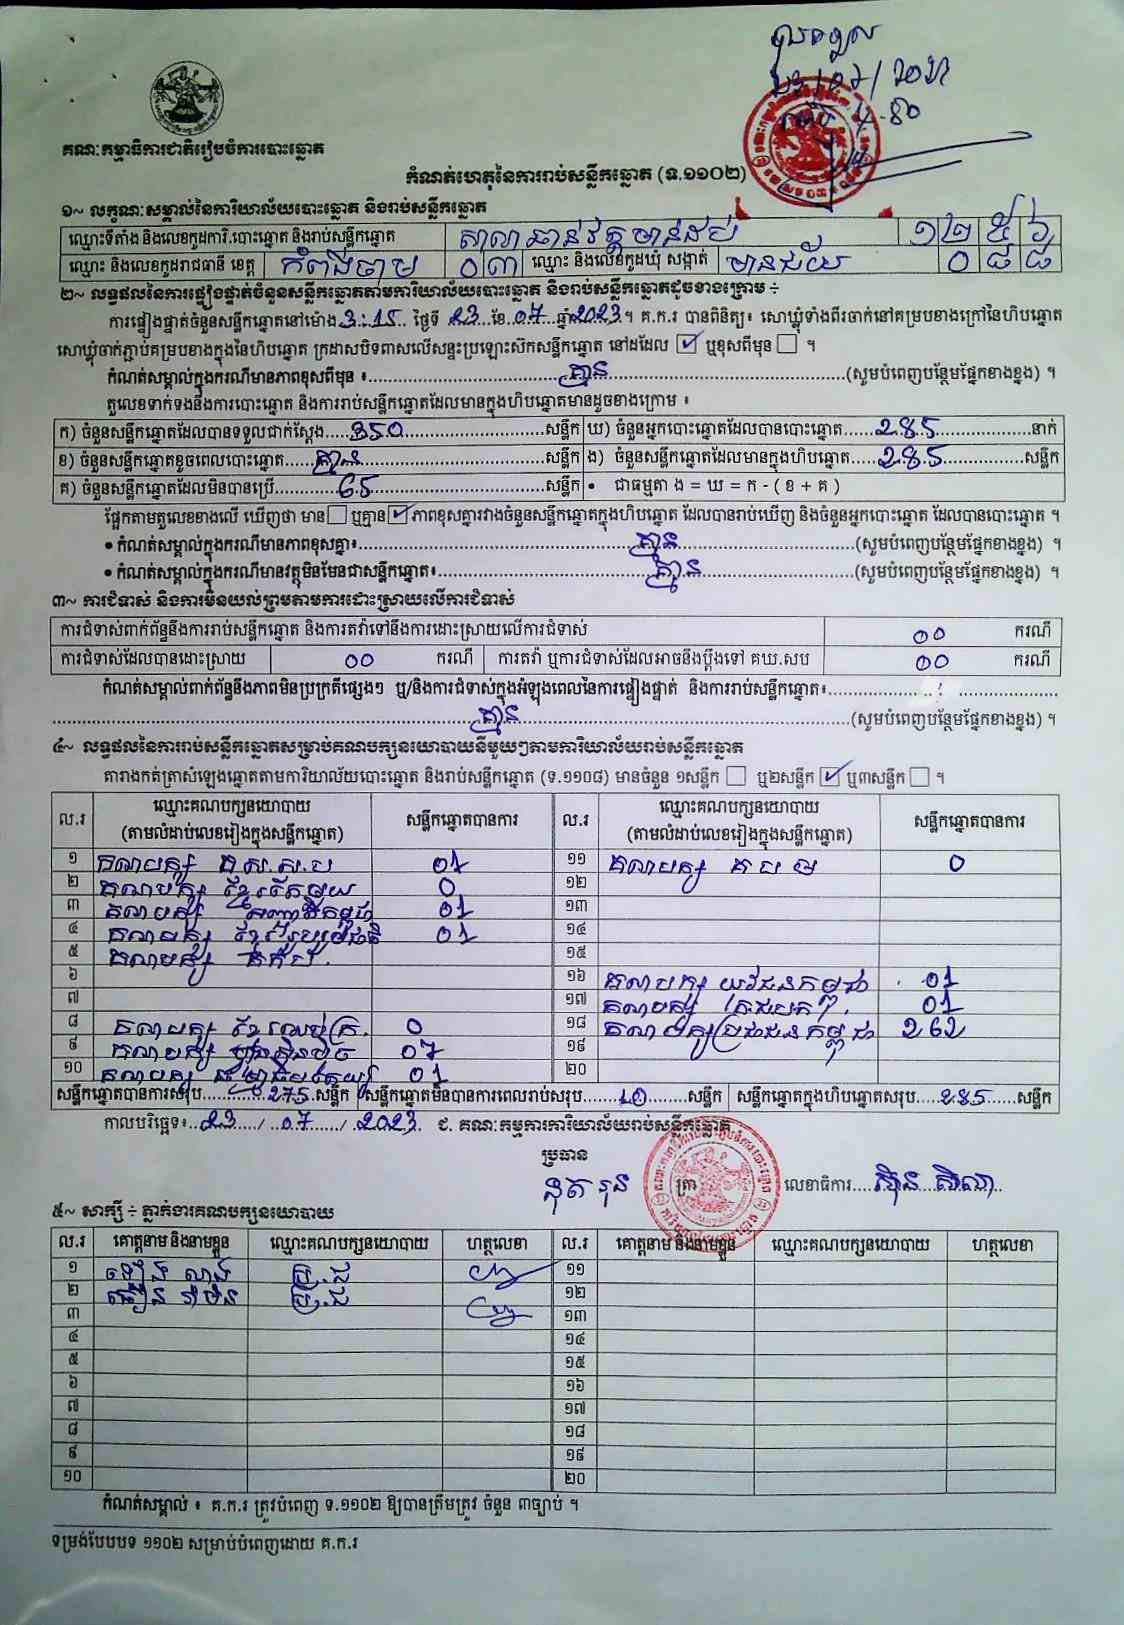 គណៈកម្មាធិការជាតិរៀបចំការបោះឆ្នោត
កំណត់ហេតុនៃការរាប់សន្លឹកឆ្នោត (ទ.១១០២)
១~ លក្ខណៈសម្គាល់នៃការិយាល័យបោះឆ្នោត និងរាប់សន្លឹកឆ្នោត
ឈ្មោះទីតាំង និងលេខកូដការិ.បោះឆ្នោត និងរាប់សន្លឹកឆ្នោត សាលាឆាន់វត្តមាន់ ១២៥៦
ឈ្មោះ និងលេខកូដរាជធានី ខេត្ត កំពង់ចាម ០៣ ឈ្មោះ និងលេខកូដឃុំ សង្កាត់ មានជ័យ ០៨៨
២~ លទ្ធផលនៃការផ្ទៀងផ្ទាត់ចំនួនសន្លឹកឆ្នោតតាមការិយាល័យបោះឆ្នោត និងរាប់សន្លឹកឆ្នោតដូចខាងក្រោម ÷
ការផ្ទៀងផ្ទាត់ចំនួនសន្លឹកឆ្នោតនៅម៉ោង 3:15 ថ្ងៃទី 23 ខែ 07 ឆ្នាំ 2023។ គ.ក.រ បានពិនិត្យ៖ សោឃ្លុំទាំងពីរចាក់នៅគម្របខាងក្រៅនៃហិបឆ្នោត
សោឃ្លុំចាក់ភ្ជាប់គម្របខាងក្នុងនៃហិបឆ្នោត ក្រដាសបិទពាសលើសន្ទះប្រឡោះសិកសន្លឹកឆ្នោត នៅដដែល ✓ ឬខុសពីមុន ។
កំណត់សម្គាល់ក្នុងករណីមានភាពខុសពីមុន ៖ គ្មាន (សូមបំពេញបន្ថែមផ្នែកខាងខ្នង) ។
តួលេខទាក់ទងនឹងការបោះឆ្នោត និងការរាប់សន្លឹកឆ្នោតដែលមានក្នុងហិបឆ្នោតមានដូចខាងក្រោម ៖
ក) ចំនួនសន្លឹកឆ្នោតដែលបានទទួលជាក់ស្តែង 350 សន្លឹក ឃ) ចំនួនអ្នកបោះឆ្នោតដែលបានបោះឆ្នោត 285 នាក់
ខ) ចំនួនសន្លឹកឆ្នោតខូចពេលបោះឆ្នោត គ្មាន សន្លឹក ង) ចំនួនសន្លឹកឆ្នោតដែលមានក្នុងហិបឆ្នោត 285 សន្លឹក
គ) ចំនួនសន្លឹកឆ្នោតដែលមិនបានប្រើ 65 សន្លឹក • ជាធម្មតា ង = ឃ = ក - ( ខ + គ )
ផ្អែកតាមតួលេខខាងលើ ឃើញថា មាន ឬគ្មាន ✓ ភាពខុសគ្នារវាងចំនួនសន្លឹកឆ្នោតក្នុងហិបឆ្នោត ដែលបានរាប់ឃើញ និងចំនួនអ្នកបោះឆ្នោត ដែលបានបោះឆ្នោត ។
• កំណត់សម្គាល់ក្នុងករណីមានភាពខុសគ្នា៖ គ្មាន (សូមបំពេញបន្ថែមផ្នែកខាងខ្នង) ។
• កំណត់សម្គាល់ក្នុងករណីមានវត្ថុមិនមែនជាសន្លឹកឆ្នោត៖ គ្មាន (សូមបំពេញបន្ថែមផ្នែកខាងខ្នង) ។
៣~ ការជំទាស់ និងការមិនយល់ព្រមតាមការដោះស្រាយលើការជំទាស់
ការជំទាស់ពាក់ព័ន្ធនឹងការរាប់សន្លឹកឆ្នោត និងការតវ៉ាទៅនឹងការដោះស្រាយលើការជំទាស់ 00 ករណី
ការជំទាស់ដែលបានដោះស្រាយ 00 ករណី ការតវ៉ា ឬការជំទាស់ដែលអាចនឹងប្តឹងទៅ គឃ.សប 00 ករណី
កំណត់សម្គាល់ពាក់ព័ន្ធនឹងភាពមិនប្រក្រតីផ្សេងៗ ឬ/និងការជំទាស់ក្នុងអំឡុងពេលនៃការផ្ទៀងផ្ទាត់ និងការរាប់សន្លឹកឆ្នោត៖
គ្មាន (សូមបំពេញបន្ថែមផ្នែកខាងខ្នង) ។
៤~ លទ្ធផលនៃការរាប់សន្លឹកឆ្នោតសម្រាប់គណបក្សនយោបាយនីមួយៗតាមការិយាល័យរាប់សន្លឹកឆ្នោត
តារាងកត់ត្រាសំឡេងឆ្នោតតាមការិយាល័យបោះឆ្នោត និងរាប់សន្លឹកឆ្នោត (ទ.១១០៨) មានចំនួន ១សន្លឹក ឬ២សន្លឹក ✓ ឬ៣សន្លឹក ។
ល.រ ឈ្មោះគណបក្សនយោបាយ (តាមលំដាប់លេខរៀងក្នុងសន្លឹកឆ្នោត) សន្លឹកឆ្នោតបានការ ល.រ ឈ្មោះគណបក្សនយោបាយ (តាមលំដាប់លេខរៀងក្នុងសន្លឹកឆ្នោត) សន្លឹកឆ្នោតបានការ
១ គណបក្ស គ.ស.ស.ប 01 ១១ គណបក្ស គ ប ម 0
២ គណបក្ស ខ្មែរតែមួយ 0 ១២
៣ គណបក្ស 01 ១៣
៤ គណបក្ស 01 ១៤
៥ គណបក្ស ១៥
៦ ១៦ គណបក្ស យុវជនកម្ពុជា 01
៧ ១៧ គណបក្ស 01
៨ គណបក្ស 0 ១៨ គណបក្សប្រជាជនកម្ពុជា 262
៩ គណបក្ស ហ្វ៊ុនស៊ិនប៉ិច 07 ១៩
១០ គណបក្ស 01 ២០
សន្លឹកឆ្នោតបានការសរុប 275 សន្លឹក សន្លឹកឆ្នោតមិនបានការពេលរាប់សរុប 10 សន្លឹក សន្លឹកឆ្នោតក្នុងហិបឆ្នោតសរុប 285 សន្លឹក
កាលបរិច្ឆេទ៖ 23 / 07 / 2023 ជ. គណៈកម្មការការិយាល័យរាប់សន្លឹកឆ្នោត
ប្រធាន
ត្រា លេខាធិការ
៥~ សាក្សី ÷ ភ្នាក់ងារគណបក្សនយោបាយ
ល.រ គោត្តនាម និងនាមខ្លួន ឈ្មោះគណបក្សនយោបាយ ហត្ថលេខា ល.រ គោត្តនាម និងនាមខ្លួន ឈ្មោះគណបក្សនយោបាយ ហត្ថលេខា
១ ប្រ.ជ ១១
២ ប្រ.ជ ១២
៣ ១៣
៤ ១៤
៥ ១៥
៦ ១៦
៧ ១៧
៨ ១៨
៩ ១៩
១០ ២០
កំណត់សម្គាល់ ៖ គ.ក.រ ត្រូវបំពេញ ទ.១១០២ ឱ្យបានត្រឹមត្រូវ ចំនួន ៣ច្បាប់ ។
ទម្រង់បែបបទ ១១០២ សម្រាប់បំពេញដោយ គ.ក.រ